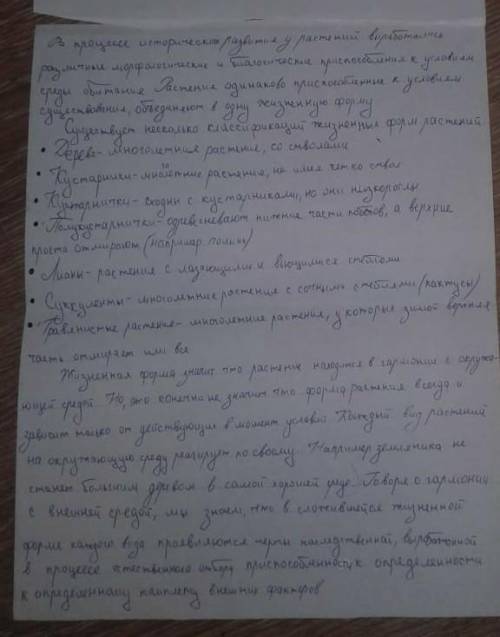 В процессе исторического развития у растений выработались
различные морфологические и биологические приспособления к условиям
среды обитания. Растения одинаково приспособленные к условиям
существования, объединяют в одну жизненную форму
Существует несколько классификаций жизненных форм растений
• Деревья - многолетние растение, со стволами
• Кустарники - многолетние растения, не имея четко ствол
• Кустарнички - сходни с кустарниками, но они низкорослы
• Полукустарнички - одревесневают нижние части побегов, а верхние
просто отмирают (например. полынь)
• Лианы - растения с лазающими и вьющимися стеблями
• Суккуленты - многолетние растения с сочными стеблями (кактусы)
• Травянистые растения - многолетние растения, у которые зимой верхняя
часть отмирает или все
Жизненная форма значит что растение находится в гармонии с окружа-
ющей средой. Но, это конечно не значит что форма растения всегда и
зависит только от действующих в момент условий. Каждый вид растений
на окружающую среду реагирует по своему. Например земляника не
станет большим древом в самой хорошей Говоря о гармонии
с внешней средой, мы знаем, что в сложившейся жизненной
форме каждого вида проявляются черты наследственной, выработанной
в процессе естественного отбора приспособленность к определенности
к определенному комплексу внешних факторов